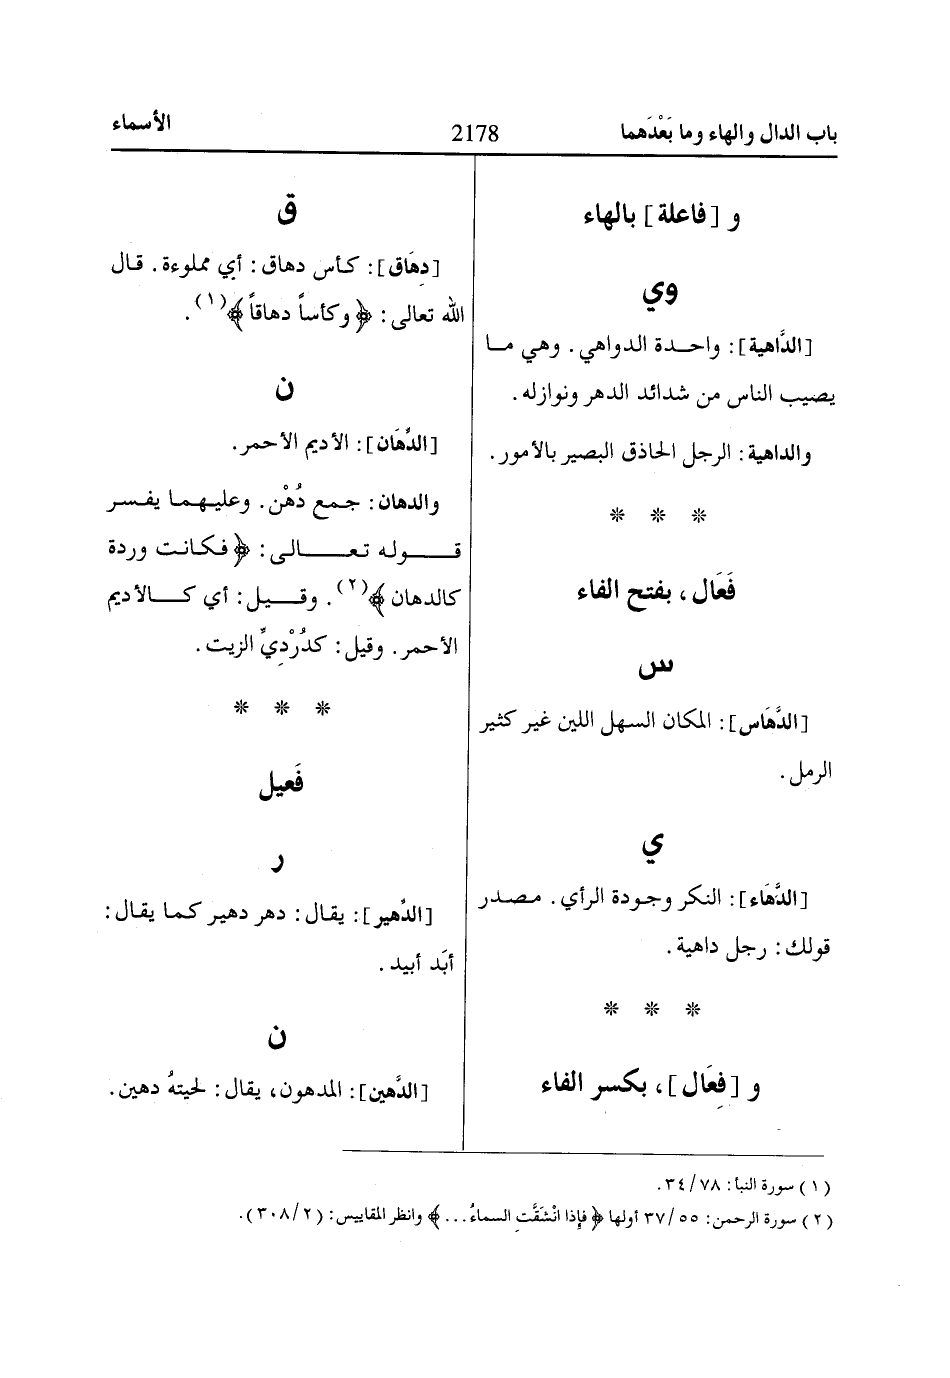 باب الدال والهاء وما بَعْدَهما
2178
الأسماء
و [فاعلة] بالهاء
وي
[الدَّاهية]: واحـدة الدواهي. وهي مـا
يصيب الناس من شدائد الدهر ونوازله.
والداهية: الرجل الحاذق البصير بالأمور.
* * *
فَعَال، بفتح الفاء
س
[الدَّهَاس]: المكان السهل اللين غير كثير
الرمل.
ي
[الدَّهَاء]: النكر وجودة الرأي. مصدر
قولك: رجل داهية.
* * *
و [فِعَال]، بكسر الفاء
ق
[دِهَاق]: كـأس دهاق: أي مملوءة. قـال
الله تعالى: ﴿وكأساً دهاقاً﴾(١).
ن
[الدِّهَان]: الأديم الأحمر.
والدهان: جـمع دُهْن. وعليـهـما يفـسر
قـولـه تـعـالى: ﴿فكانت وردة
كالدهان﴾(٢). وقـيـل: أي كـالأديم
الأحمر. وقيل: كدُرْدِيِّ الزيت.
* * *
فَعيل
ر
[الدَّهير]: يقال: دهر دهير كما يقال:
أبَد أبيد.
ن
[الدَّهين]: المدهون، يقال: لحيتهُ دهين.
(١) سورة النبأ: ٧٨/ ٣٤.
(٢) سورة الرحمن: ٥٥/ ٣٧ أولها ﴿فإذا انْشَقَّتِ السماءُ...﴾ وانظر المقاييس: (٢/ ٣٠٨).